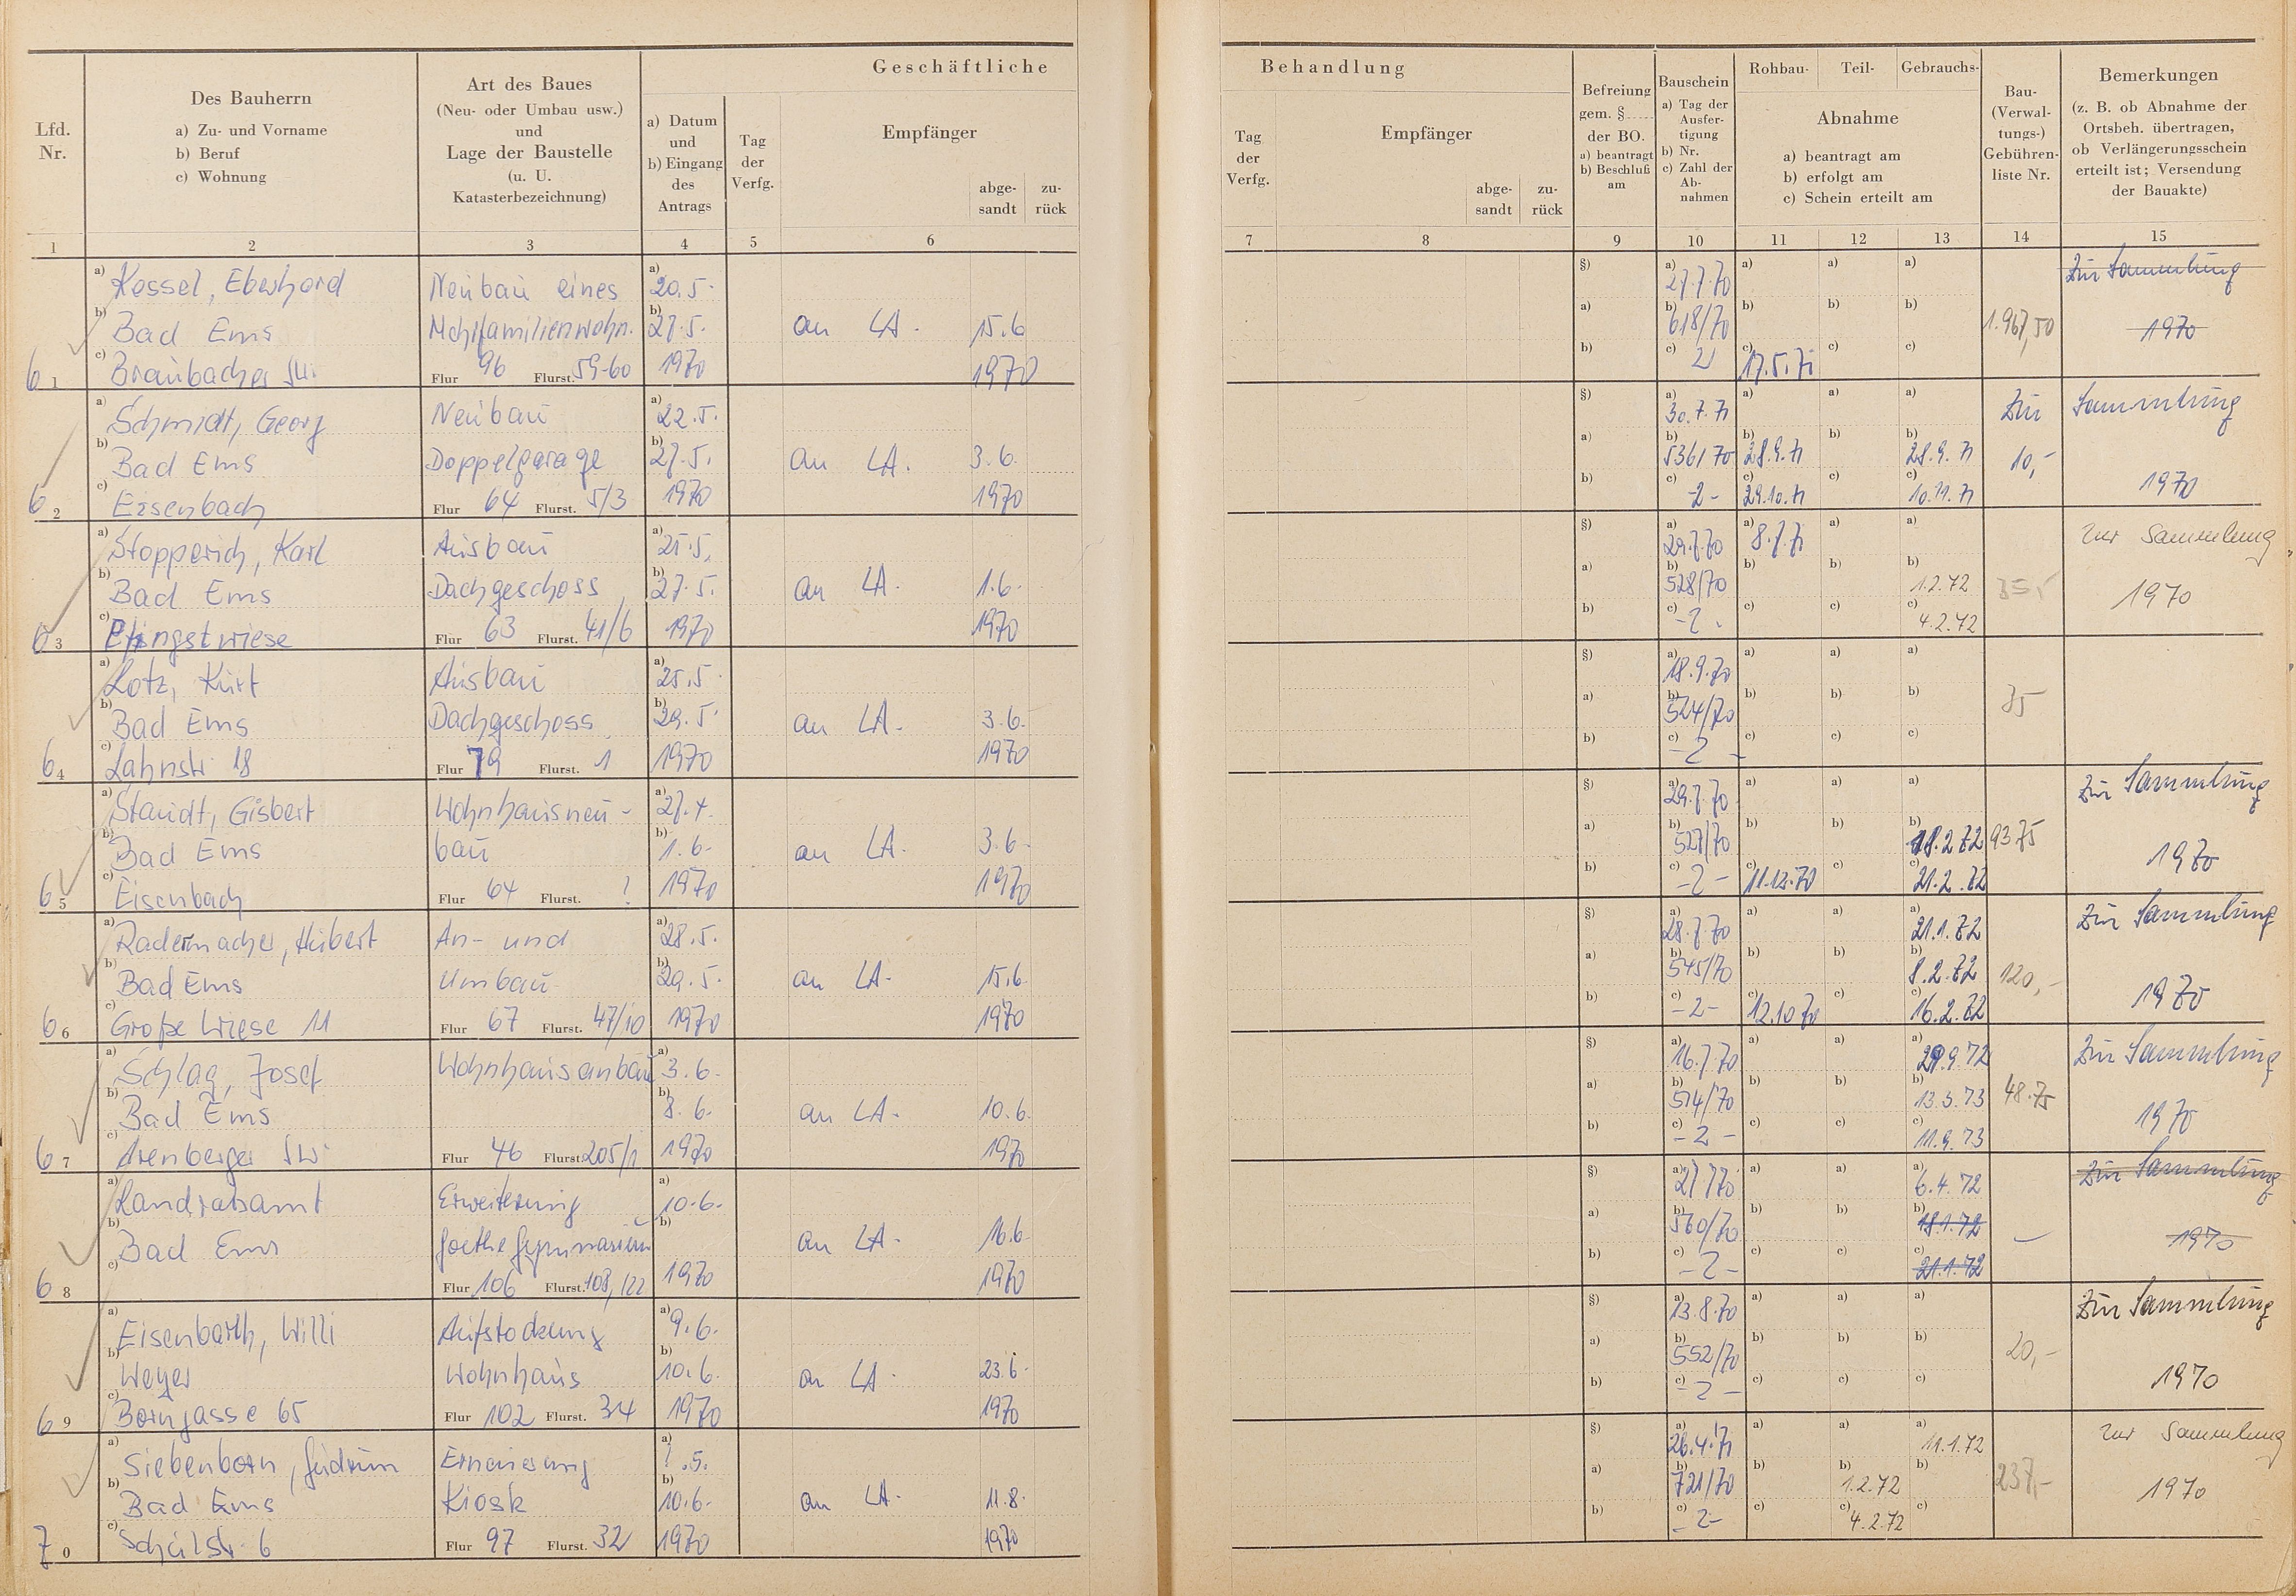 Geschäftliche
Lfd. Nr.
Des Bauherrn
a) Zu- und Vorname
b) Beruf
c) Wohnung
Art des Baues
(Neu- oder Umbau usw.)
und
Lage der Baustelle
(u. U.
Katasterbezeichnung)
a) Datum
und
b) Eingang
des
Antrags
Tag
der
Verfg.
Empfänger
abge-
sandt
zu-
rück
1 2 3 4 5 6
Behandlung
Tag
der
Verfg.
Empfänger
abge-
sandt
zu-
rück
Befreiung
gem. §
der BO.
a) beantragt
b) Beschluß
am
Bauschein
a) Tag der
Ausfer-
tigung
b) Nr.
c) Zahl der
Ab-
nahmen
Rohbau- Teil- Gebrauchs-
Abnahme
a) beantragt am
b) erfolgt am
c) Schein erteilt am
Bau-
(Verwal-
tungs-)
Gebühren-
liste Nr.
Bemerkungen
(z. B. ob Abnahme der
Ortsbeh. übertragen,
ob Verlängerungsschein
erteilt ist; Versendung
der Bauakte)
7 8 9 10 11 12 13 14 15
a) Kossel, Eberhard Neubau eines a) 20.5. §) a) 27.7.70 a) a) a) Zur Sammlung
b) Bad Ems Mehrfamilienwohn. b) 27.5. an LA. 15.6 a) b) 618/70 b) b) b) 1.967,50 1970
61 c) Braubacher Str. Flur 96 Flurst. 59-60 1970 1970 b) c) 2 c) 17.5.71 c) c)
a) Schmidt, Georg Neubau a) 22.5. §) a) 30.7.71 a) a) a) Zur Sammlung
b) Bad Ems Doppelgarage b) 27.5. an LA. 3.6. a) b) 536/70 b) 28.9.71 b) b) 28.9.71 10,-
62 c) Eisenbach Flur 64 Flurst. 5/3 1970 1970 b) c) -2- c) 29.10.71 c) c) 10.11.71 1970
a) Stopperich, Karl Ausbau a) 25.5. §) a) 29.7.70 a) 8.7.71 a) a) zur Sammlung
b) Bad Ems Dachgeschoss b) 27.5. an LA. 1.6. a) b) 528/70 b) b) b) 1.2.72 35,- 1970
63 c) Pfingstwiese Flur 63 Flurst. 41/6 1970 1970 b) c) -2. c) c) c) 4.2.72
a) Lotz, Kurt Ausbau a) 25.5. §) a) 18.9.70 a) a) a)
b) Bad Ems Dachgeschoss b) 29.5. an LA. 3.6. a) b) 524/70 b) b) b) 35
64 c) Lahnstr. 18 Flur 79 Flurst. 1 1970 1970 b) c) -2- c) c) c)
a) Staudt, Gisbert Wohnhausneu- a) 27.4. §) a) 29.7.70 a) a) a) Zur Sammlung
b) Bad Ems bau b) 1.6. an LA. 3.6. a) b) 527/70 b) b) b) 18.2.72 93.75
65 c) Eisenbach Flur 64 Flurst. ? 1970 1970 b) c) -2- c) 11.12.70 c) c) 21.2.72 1970
a) Radermacher, Hubert An- und a) 28.5. §) a) 28.7.70 a) a) a) 21.1.72 Zur Sammlung
b) Bad Ems Umbau b) 29.5. an LA. 15.6. a) b) 545/70 b) b) b) 8.2.72 120,-
66 c) Große Wiese 11 Flur 67 Flurst. 47/10 1970 1970 b) c) -2- c) 12.10.70 c) c) 16.2.72 1970
a) Schlag, Josef Wohnhausanbau a) 3.6. §) a) 16.7.70 a) a) a) 29.9.72 Zur Sammlung
b) Bad Ems b) 8.6. an LA. 10.6. a) b) 514/70 b) b) b) 13.3.73 48.75
67 c) Arenberger Str. Flur 46 Flurst. 205/1 1970 1970 b) c) -2- c) c) c) 11.9.73 1970
a) Landratsamt Erweiterung a) 10.6. §) a) 27.7.70 a) a) a) 6.4.72 Zur Sammlung
b) Bad Ems Goethe Gymnasium b) an LA. 16.6. a) b) 560/70 b) b) b) 18.1.72 - 1970
68 c) Flur 106 Flurst. 108,122 1970 1970 b) c) -2- c) c) c) 21.1.72
a) Eisenbarth, Willi Aufstockung a) 9.6. §) a) 13.8.70 a) a) a) Zur Sammlung
b) Weyer Wohnhaus b) 10.6. an LA. 23.6. a) b) 552/70 b) b) b) 20,-
69 c) Borngasse 65 Flur 102 Flurst. 34 1970 1970 b) c) -2- c) c) c) 1970
a) Siebenborn, Gudrun Erneuerung a) ?.5. §) a) 26.4.71 a) a) a) 11.1.72 zur Sammlung
b) Bad Ems Kiosk b) 10.6. an LA. 11.8. a) b) 721/70 b) b) 1.2.72 b) 237,- 1970
70 c) Schulstr. 6 Flur 97 Flurst. 32 1970 1970 b) c) -2- c) c) 4.2.72 c)